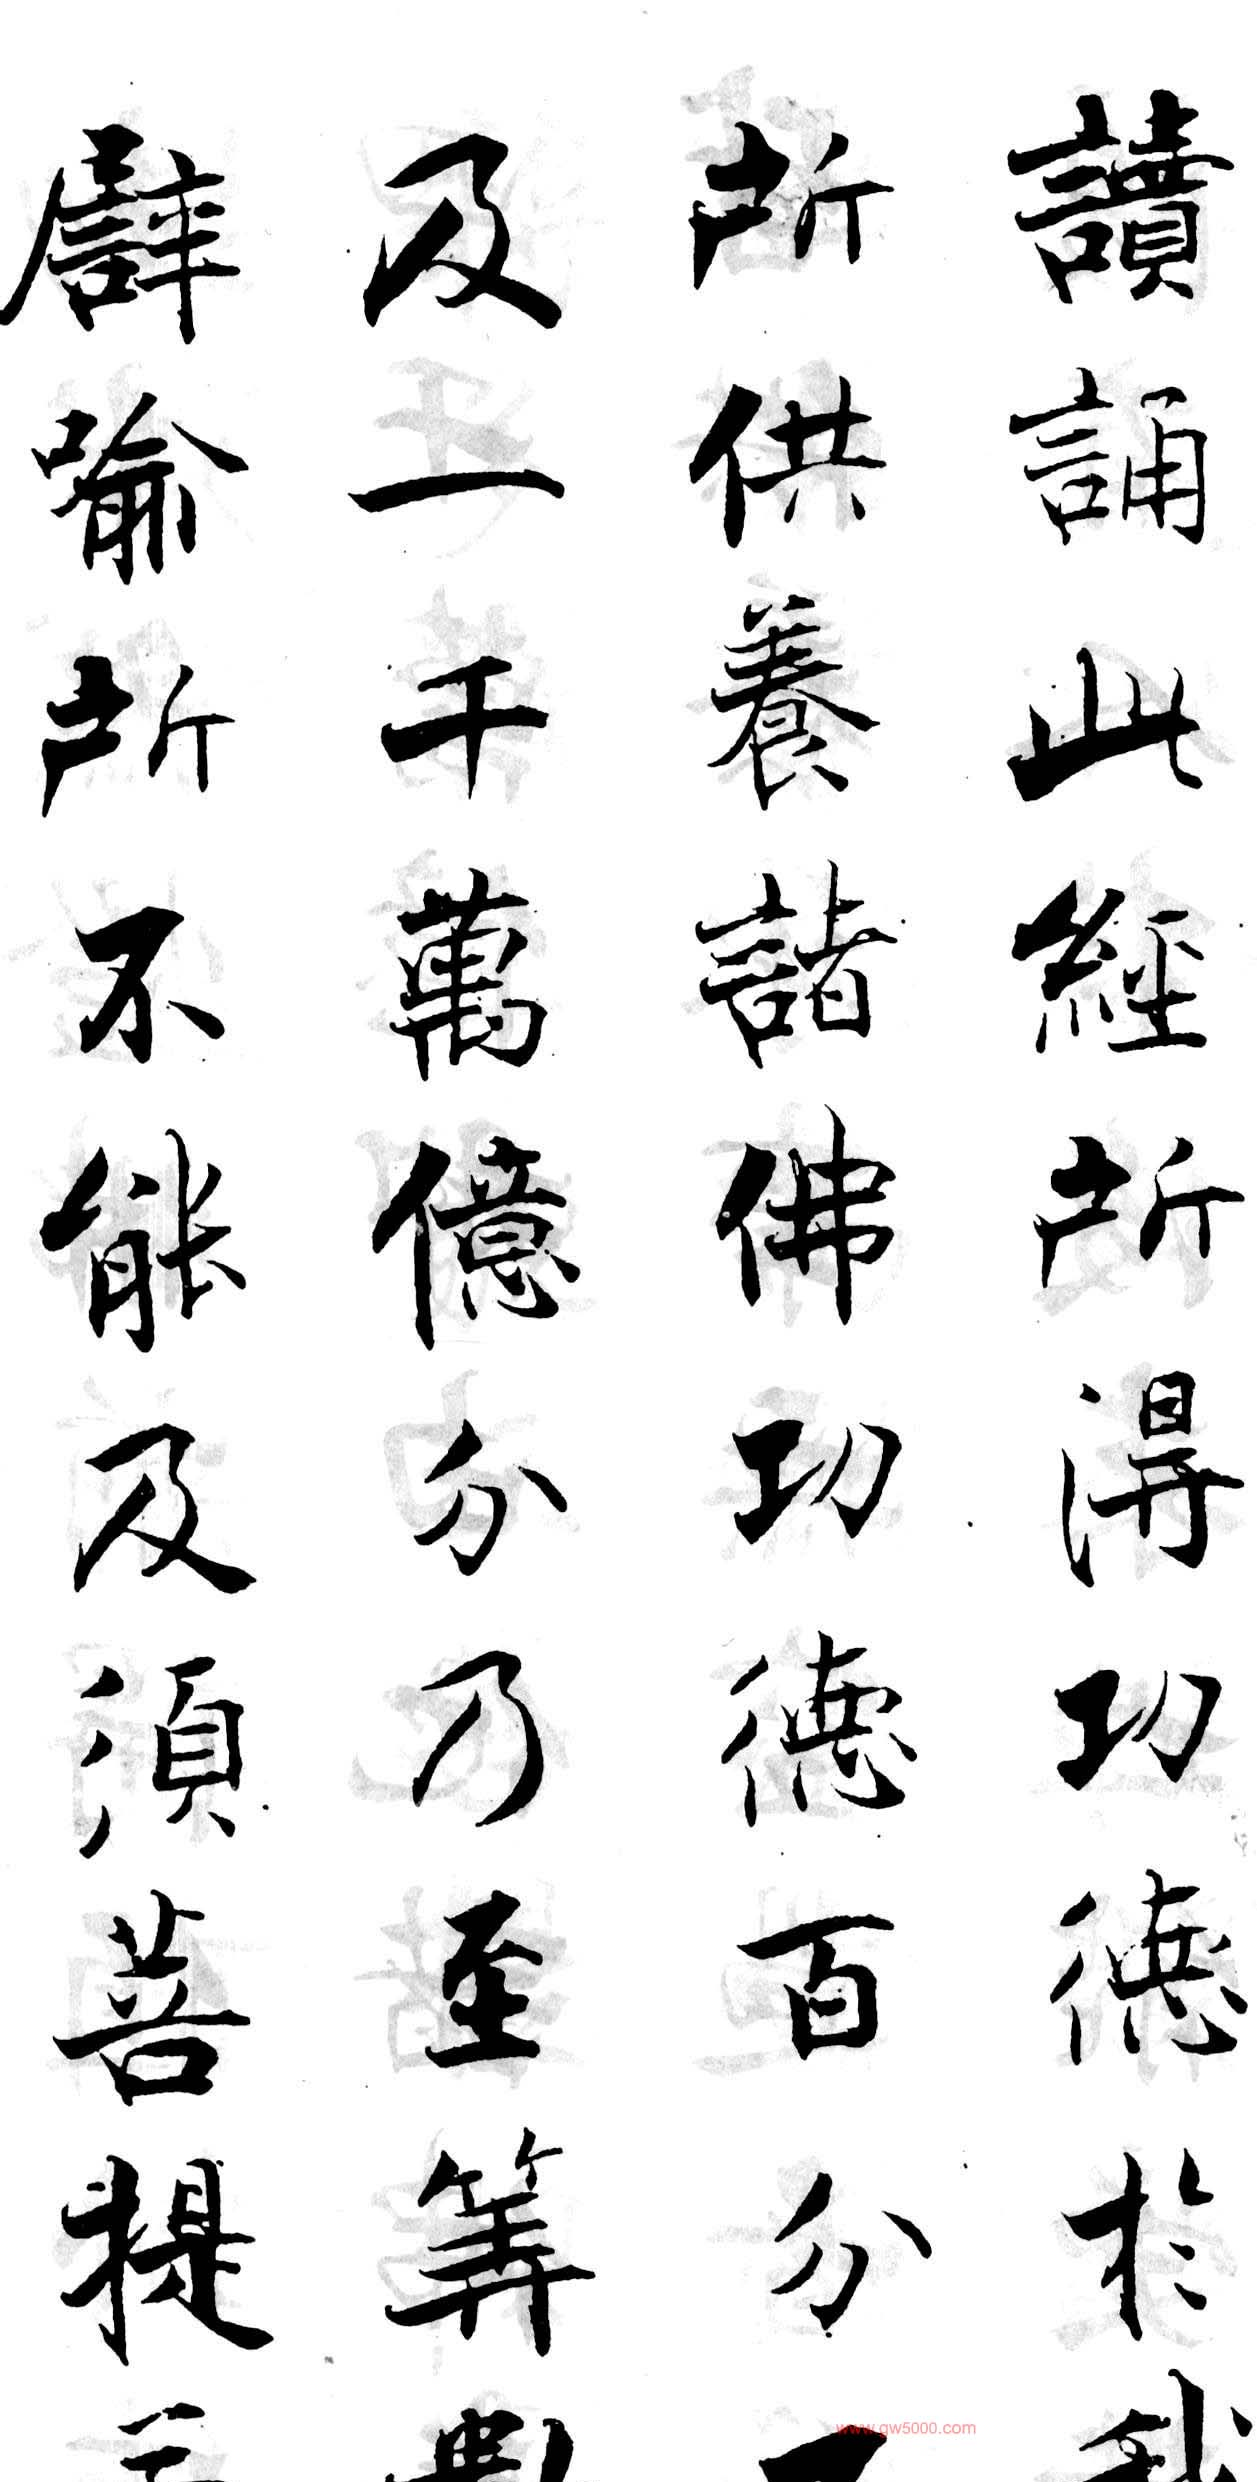 讀誦此經所得功德於我
所供養諸佛功德百分不
及一千萬億分乃至筭數
譬喻所不能及須菩提
www.gw5000.com